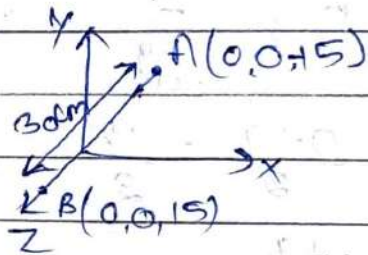 Y
A(0,0,-15)
30cm
X
B(0,0,15)
Z